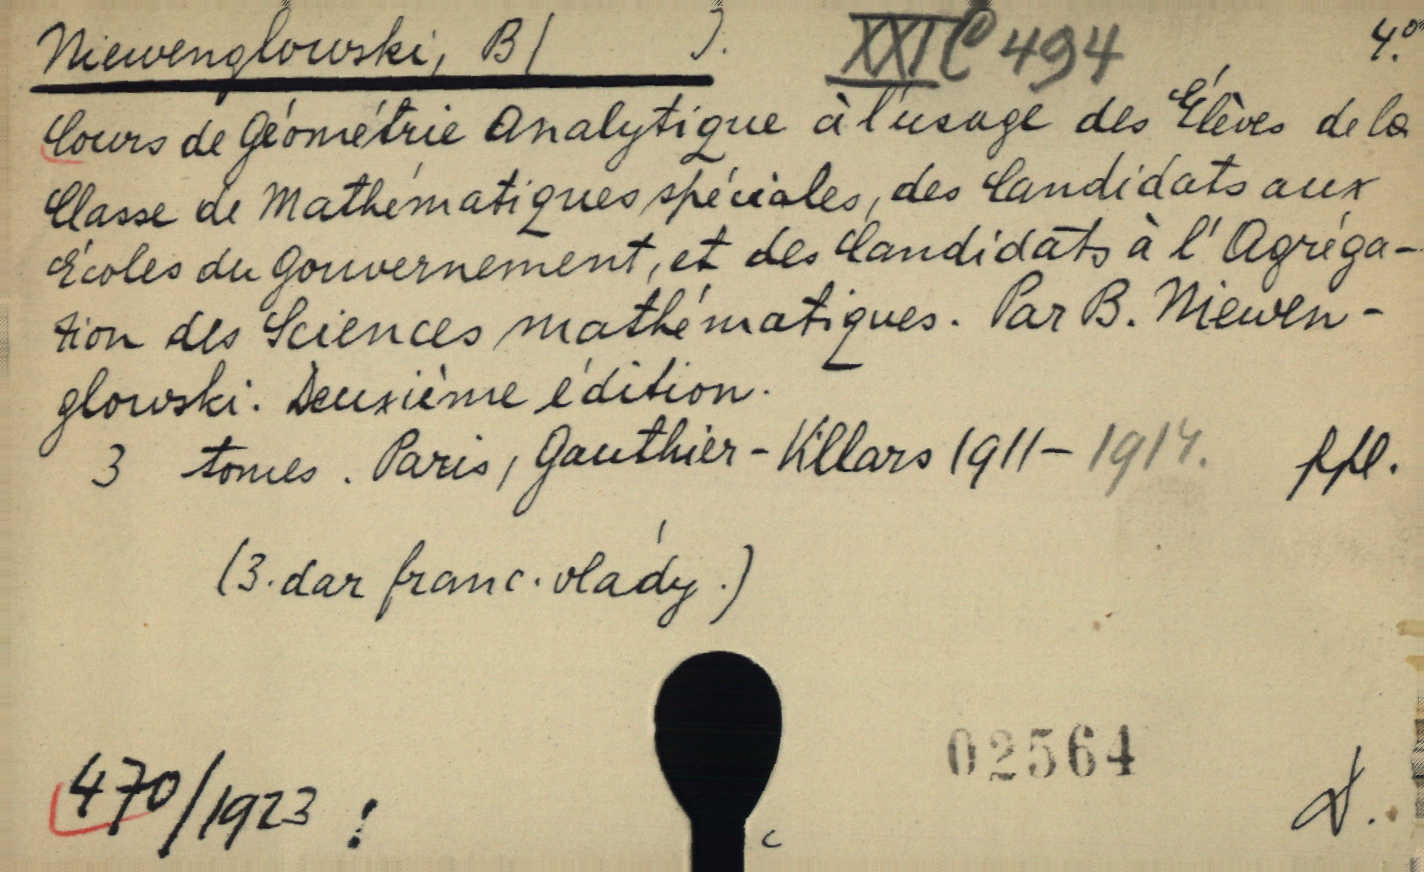 Niewenglowski, B( ). XXI C 494 4.º
Cours de Géométrie Analytique à l'usage des Élèves de la
Classe de Mathématiques spéciales, des Candidats aux
Écoles du Gouvernement, et des Candidats à l'Agréga-
tion des Sciences mathématiques. Par B. Niewen-
glowski. Deuxième édition.
3 tomes. Paris, Gauthier-Villars 1911-1914. ppl.
(3. dar franc. vlády.)
02564
470/1923 !
c